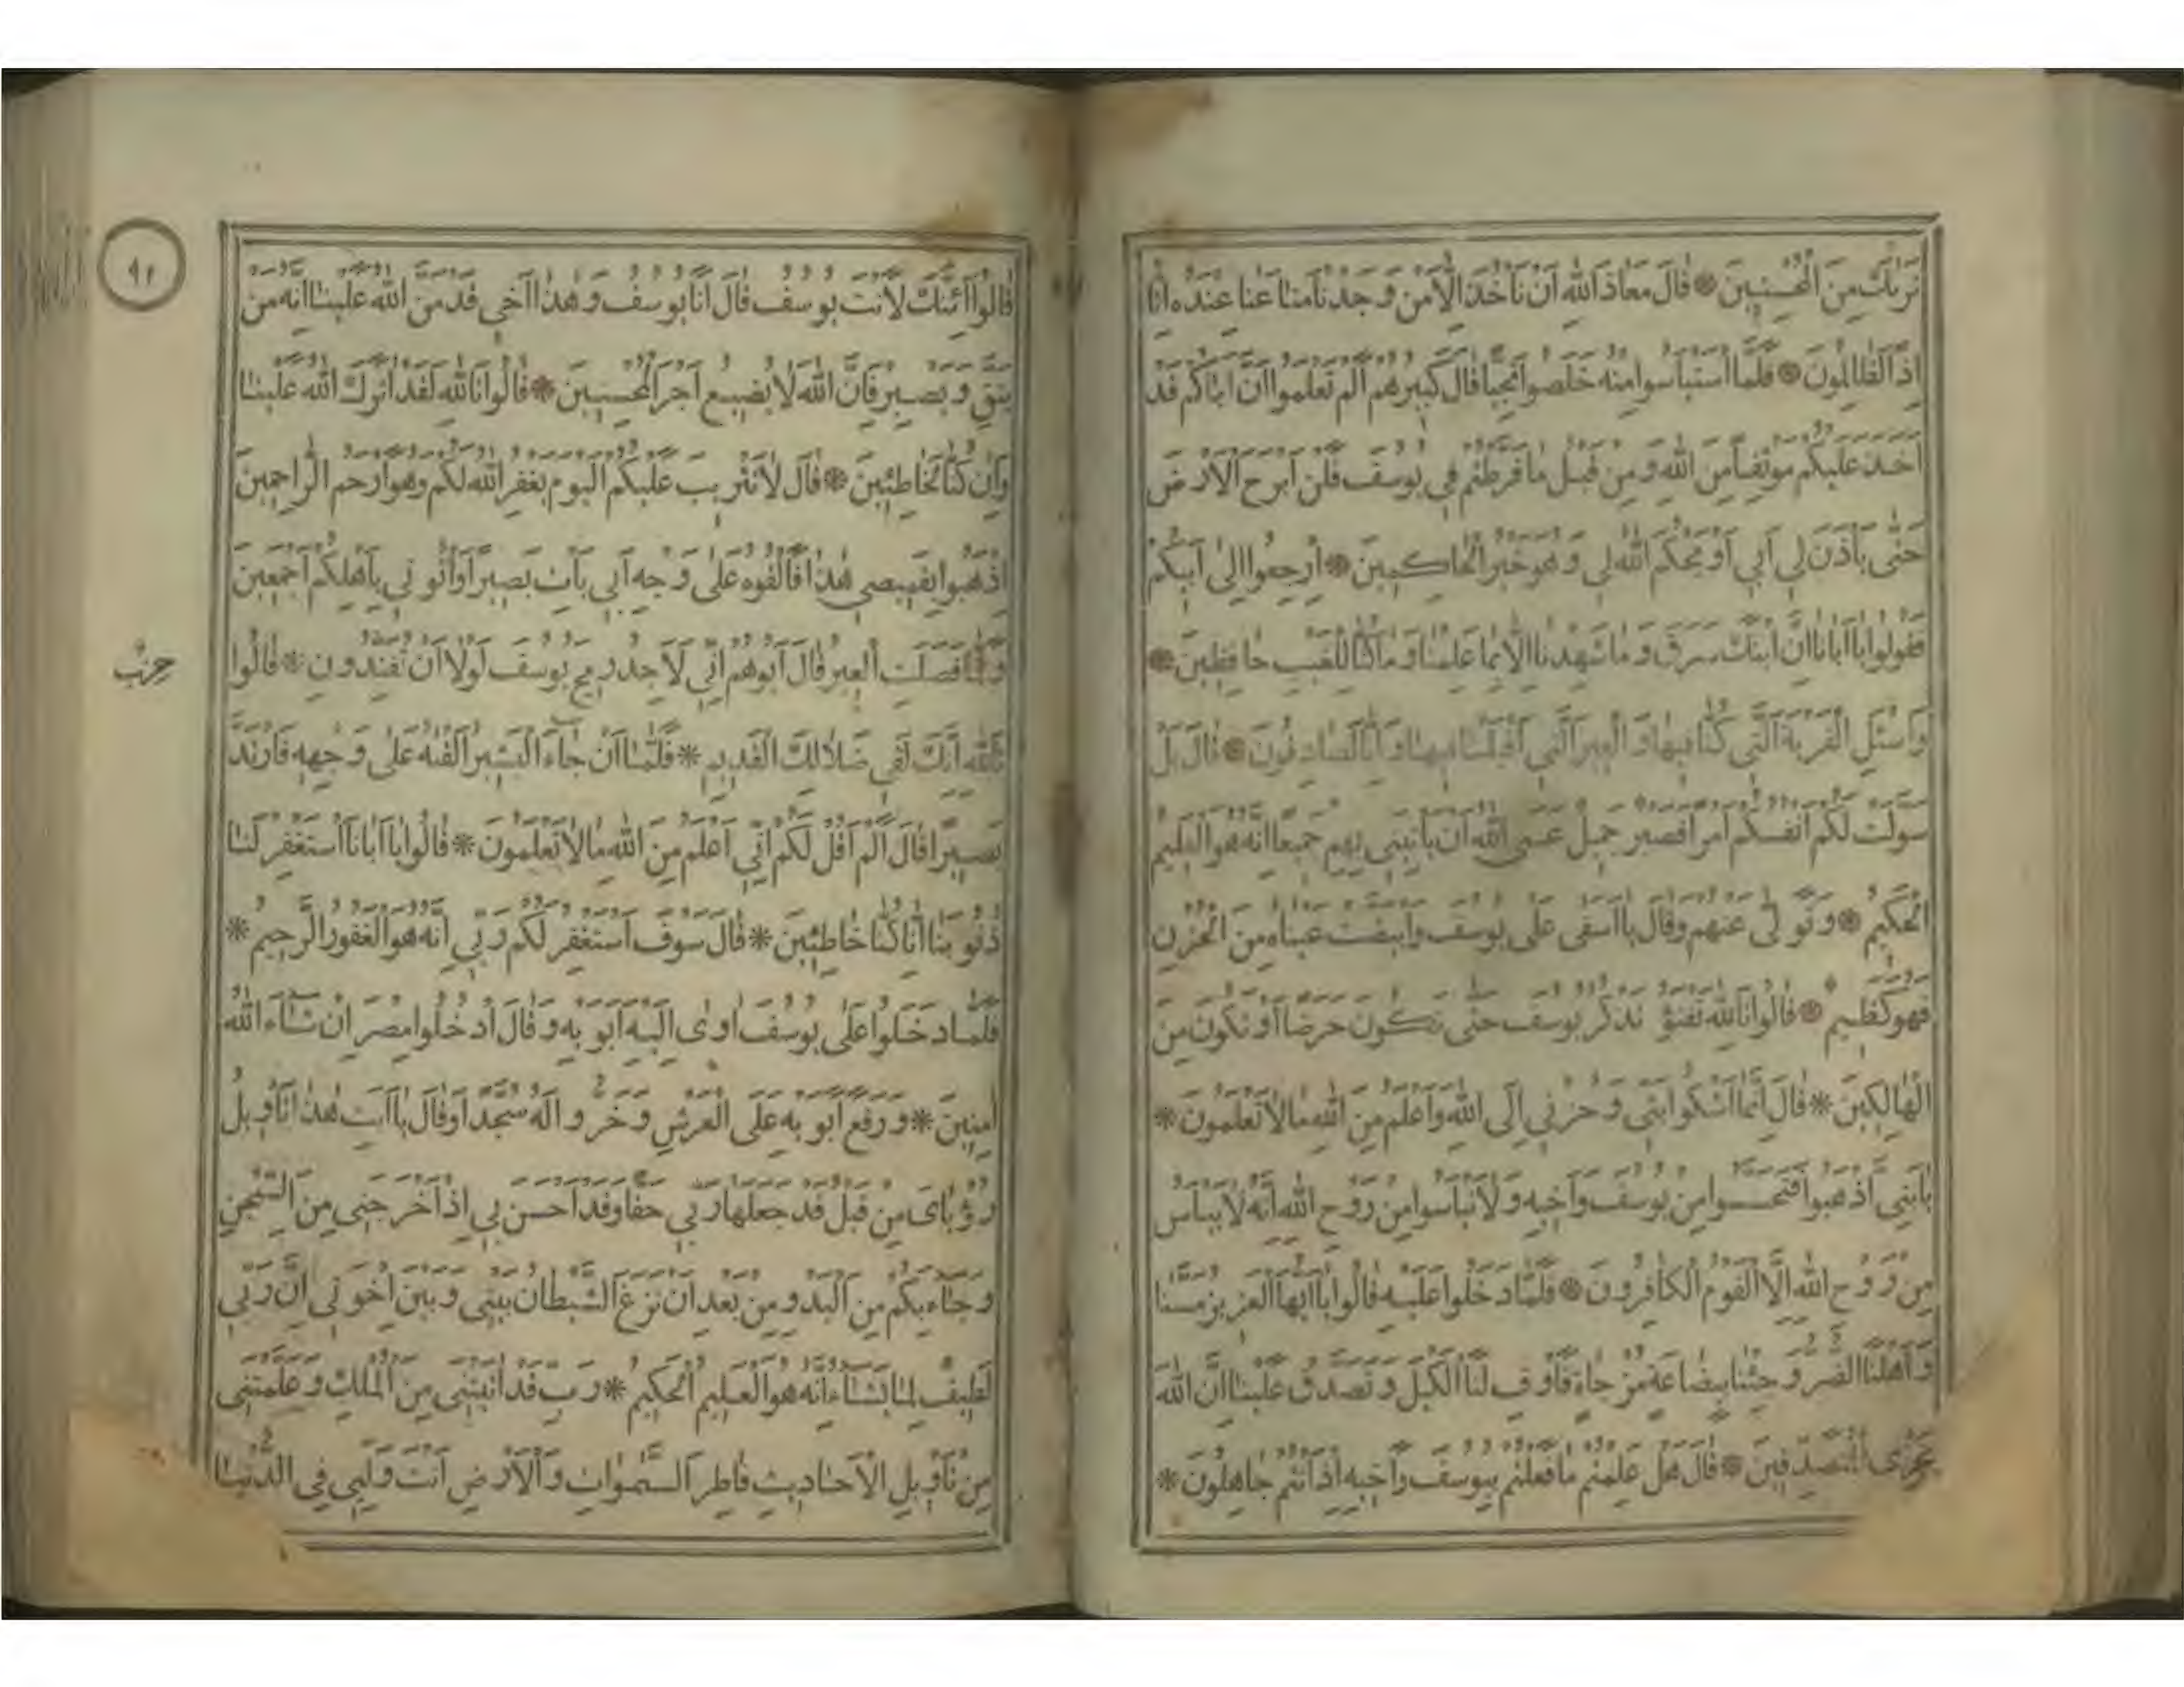 نَرٰيكَ مِنَ الْمُحْسِنِينَ * قَالَ مَعَاذَ اللّٰهِ اَنْ نَأْخُذَ اِلَّا مَنْ وَجَدْنَا مَتَاعَنَا عِنْدَهُ اِنَّا
اِذًا لَظَالِمُونَ * فَلَمَّا اسْتَيْاَسُوا مِنْهُ خَلَصُوا نَجِيًّا قَالَ كَبِيرُهُمْ اَلَمْ تَعْلَمُوا اَنَّ اَبَاكُمْ قَدْ
اَخَذَ عَلَيْكُمْ مَوْثِقًا مِنَ اللّٰهِ وَمِنْ قَبْلُ مَا فَرَّطْتُمْ فِي يُوسُفَ فَلَنْ اَبْرَحَ الْاَرْضَ
حَتّٰى يَأْذَنَ لِي اَبِي اَوْ يَحْكُمَ اللّٰهُ لِي وَهُوَ خَيْرُ الْحَاكِمِينَ * اِرْجِعُوا اِلٰى اَبِيكُمْ
فَقُولُوا يَا اَبَانَا اِنَّ ابْنَكَ سَرَقَ وَمَا شَهِدْنَا اِلَّا بِمَا عَلِمْنَا وَمَا كُنَّا لِلْغَيْبِ حَافِظِينَ *
وَاسْئَلِ الْقَرْيَةَ الَّتِي كُنَّا فِيهَا وَالْعِيرَ الَّتِي اَقْبَلْنَا فِيهَا وَاِنَّا لَصَادِقُونَ * قَالَ بَلْ
سَوَّلَتْ لَكُمْ اَنْفُسُكُمْ اَمْرًا فَصَبْرٌ جَمِيلٌ عَسَى اللّٰهُ اَنْ يَأْتِيَنِي بِهِمْ جَمِيعًا اِنَّهُ هُوَ الْعَلِيمُ
الْحَكِيمُ * وَتَوَلّٰى عَنْهُمْ وَقَالَ يَا اَسَفٰى عَلٰى يُوسُفَ وَابْيَضَّتْ عَيْنَاهُ مِنَ الْحُزْنِ
فَهُوَ كَظِيمٌ * قَالُوا تَاللّٰهِ تَفْتَؤُ تَذْكُرُ يُوسُفَ حَتّٰى تَكُونَ حَرَضًا اَوْ تَكُونَ مِنَ
الْهَالِكِينَ * قَالَ اِنَّمَا اَشْكُوا بَثِّي وَحُزْنِي اِلَى اللّٰهِ وَاَعْلَمُ مِنَ اللّٰهِ مَا لَا تَعْلَمُونَ *
يَا بَنِيَّ اذْهَبُوا فَتَحَسَّسُوا مِنْ يُوسُفَ وَاَخِيهِ وَلَا تَيْاَسُوا مِنْ رَوْحِ اللّٰهِ اِنَّهُ لَا يَيْاَسُ
مِنْ رَوْحِ اللّٰهِ اِلَّا الْقَوْمُ الْكَافِرُونَ * فَلَمَّا دَخَلُوا عَلَيْهِ قَالُوا يَا اَيُّهَا الْعَزِيزُ مَسَّنَا
وَاَهْلَنَا الضُّرُّ وَجِئْنَا بِبِضَاعَةٍ مُزْجَاةٍ فَاَوْفِ لَنَا الْكَيْلَ وَتَصَدَّقْ عَلَيْنَا اِنَّ اللّٰهَ
يَجْزِي الْمُتَصَدِّقِينَ * قَالَ هَلْ عَلِمْتُمْ مَا فَعَلْتُمْ بِيُوسُفَ وَاَخِيهِ اِذْ اَنْتُمْ جَاهِلُونَ *
٩٢
قَالُوا اَئِنَّكَ لَاَنْتَ يُوسُفُ قَالَ اَنَا يُوسُفُ وَهٰذَا اَخِي قَدْ مَنَّ اللّٰهُ عَلَيْنَا اِنَّهُ مَنْ
يَتَّقِ وَيَصْبِرْ فَاِنَّ اللّٰهَ لَا يُضِيعُ اَجْرَ الْمُحْسِنِينَ * قَالُوا تَاللّٰهِ لَقَدْ اٰثَرَكَ اللّٰهُ عَلَيْنَا
وَاِنْ كُنَّا لَخَاطِئِينَ * قَالَ لَا تَثْرِيبَ عَلَيْكُمُ الْيَوْمَ يَغْفِرُ اللّٰهُ لَكُمْ وَهُوَ اَرْحَمُ الرَّاحِمِينَ
اِذْهَبُوا بِقَمِيصِي هٰذَا فَاَلْقُوهُ عَلٰى وَجْهِ اَبِي يَأْتِ بَصِيرًا وَأْتُونِي بِاَهْلِكُمْ اَجْمَعِينَ
حزب
وَلَمَّا فَصَلَتِ الْعِيرُ قَالَ اَبُوهُمْ اِنِّي لَاَجِدُ رِيحَ يُوسُفَ لَوْلَا اَنْ تُفَنِّدُونِ * قَالُوا
تَاللّٰهِ اِنَّكَ لَفِي ضَلَالِكَ الْقَدِيمِ * فَلَمَّا اَنْ جَاءَ الْبَشِيرُ اَلْقٰيهُ عَلٰى وَجْهِهِ فَارْتَدَّ
بَصِيرًا قَالَ اَلَمْ اَقُلْ لَكُمْ اِنِّي اَعْلَمُ مِنَ اللّٰهِ مَا لَا تَعْلَمُونَ * قَالُوا يَا اَبَانَا اسْتَغْفِرْ لَنَا
ذُنُوبَنَا اِنَّا كُنَّا خَاطِئِينَ * قَالَ سَوْفَ اَسْتَغْفِرُ لَكُمْ رَبِّي اِنَّهُ هُوَ الْغَفُورُ الرَّحِيمُ *
فَلَمَّا دَخَلُوا عَلٰى يُوسُفَ اٰوٰى اِلَيْهِ اَبَوَيْهِ وَقَالَ ادْخُلُوا مِصْرَ اِنْ شَاءَ اللّٰهُ
اٰمِنِينَ * وَرَفَعَ اَبَوَيْهِ عَلَى الْعَرْشِ وَخَرُّوا لَهُ سُجَّدًا وَقَالَ يَا اَبَتِ هٰذَا تَأْوِيلُ
رُؤْيَايَ مِنْ قَبْلُ قَدْ جَعَلَهَا رَبِّي حَقًّا وَقَدْ اَحْسَنَ بِي اِذْ اَخْرَجَنِي مِنَ السِّجْنِ
وَجَاءَ بِكُمْ مِنَ الْبَدْوِ مِنْ بَعْدِ اَنْ نَزَغَ الشَّيْطَانُ بَيْنِي وَبَيْنَ اِخْوَتِي اِنَّ رَبِّي
لَطِيفٌ لِمَا يَشَاءُ اِنَّهُ هُوَ الْعَلِيمُ الْحَكِيمُ * رَبِّ قَدْ اٰتَيْتَنِي مِنَ الْمُلْكِ وَعَلَّمْتَنِي
مِنْ تَأْوِيلِ الْاَحَادِيثِ فَاطِرَ السَّمٰوَاتِ وَالْاَرْضِ اَنْتَ وَلِيِّي فِي الدُّنْيَا